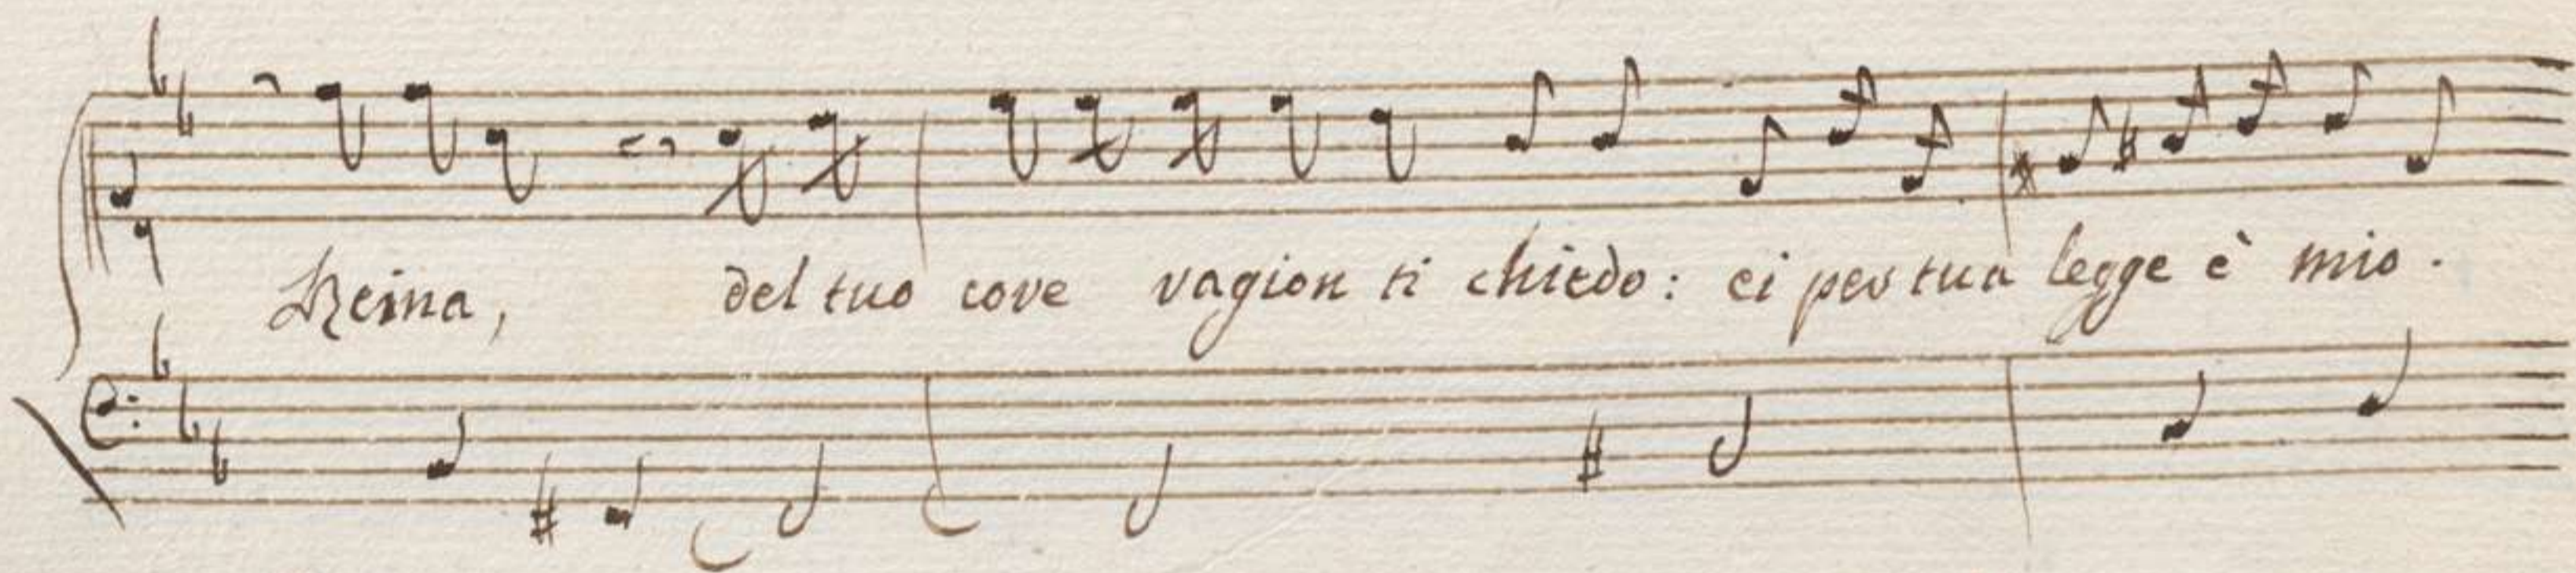 Reina, del tuo core ragion ti chiedo: ei per tua legge è mio.